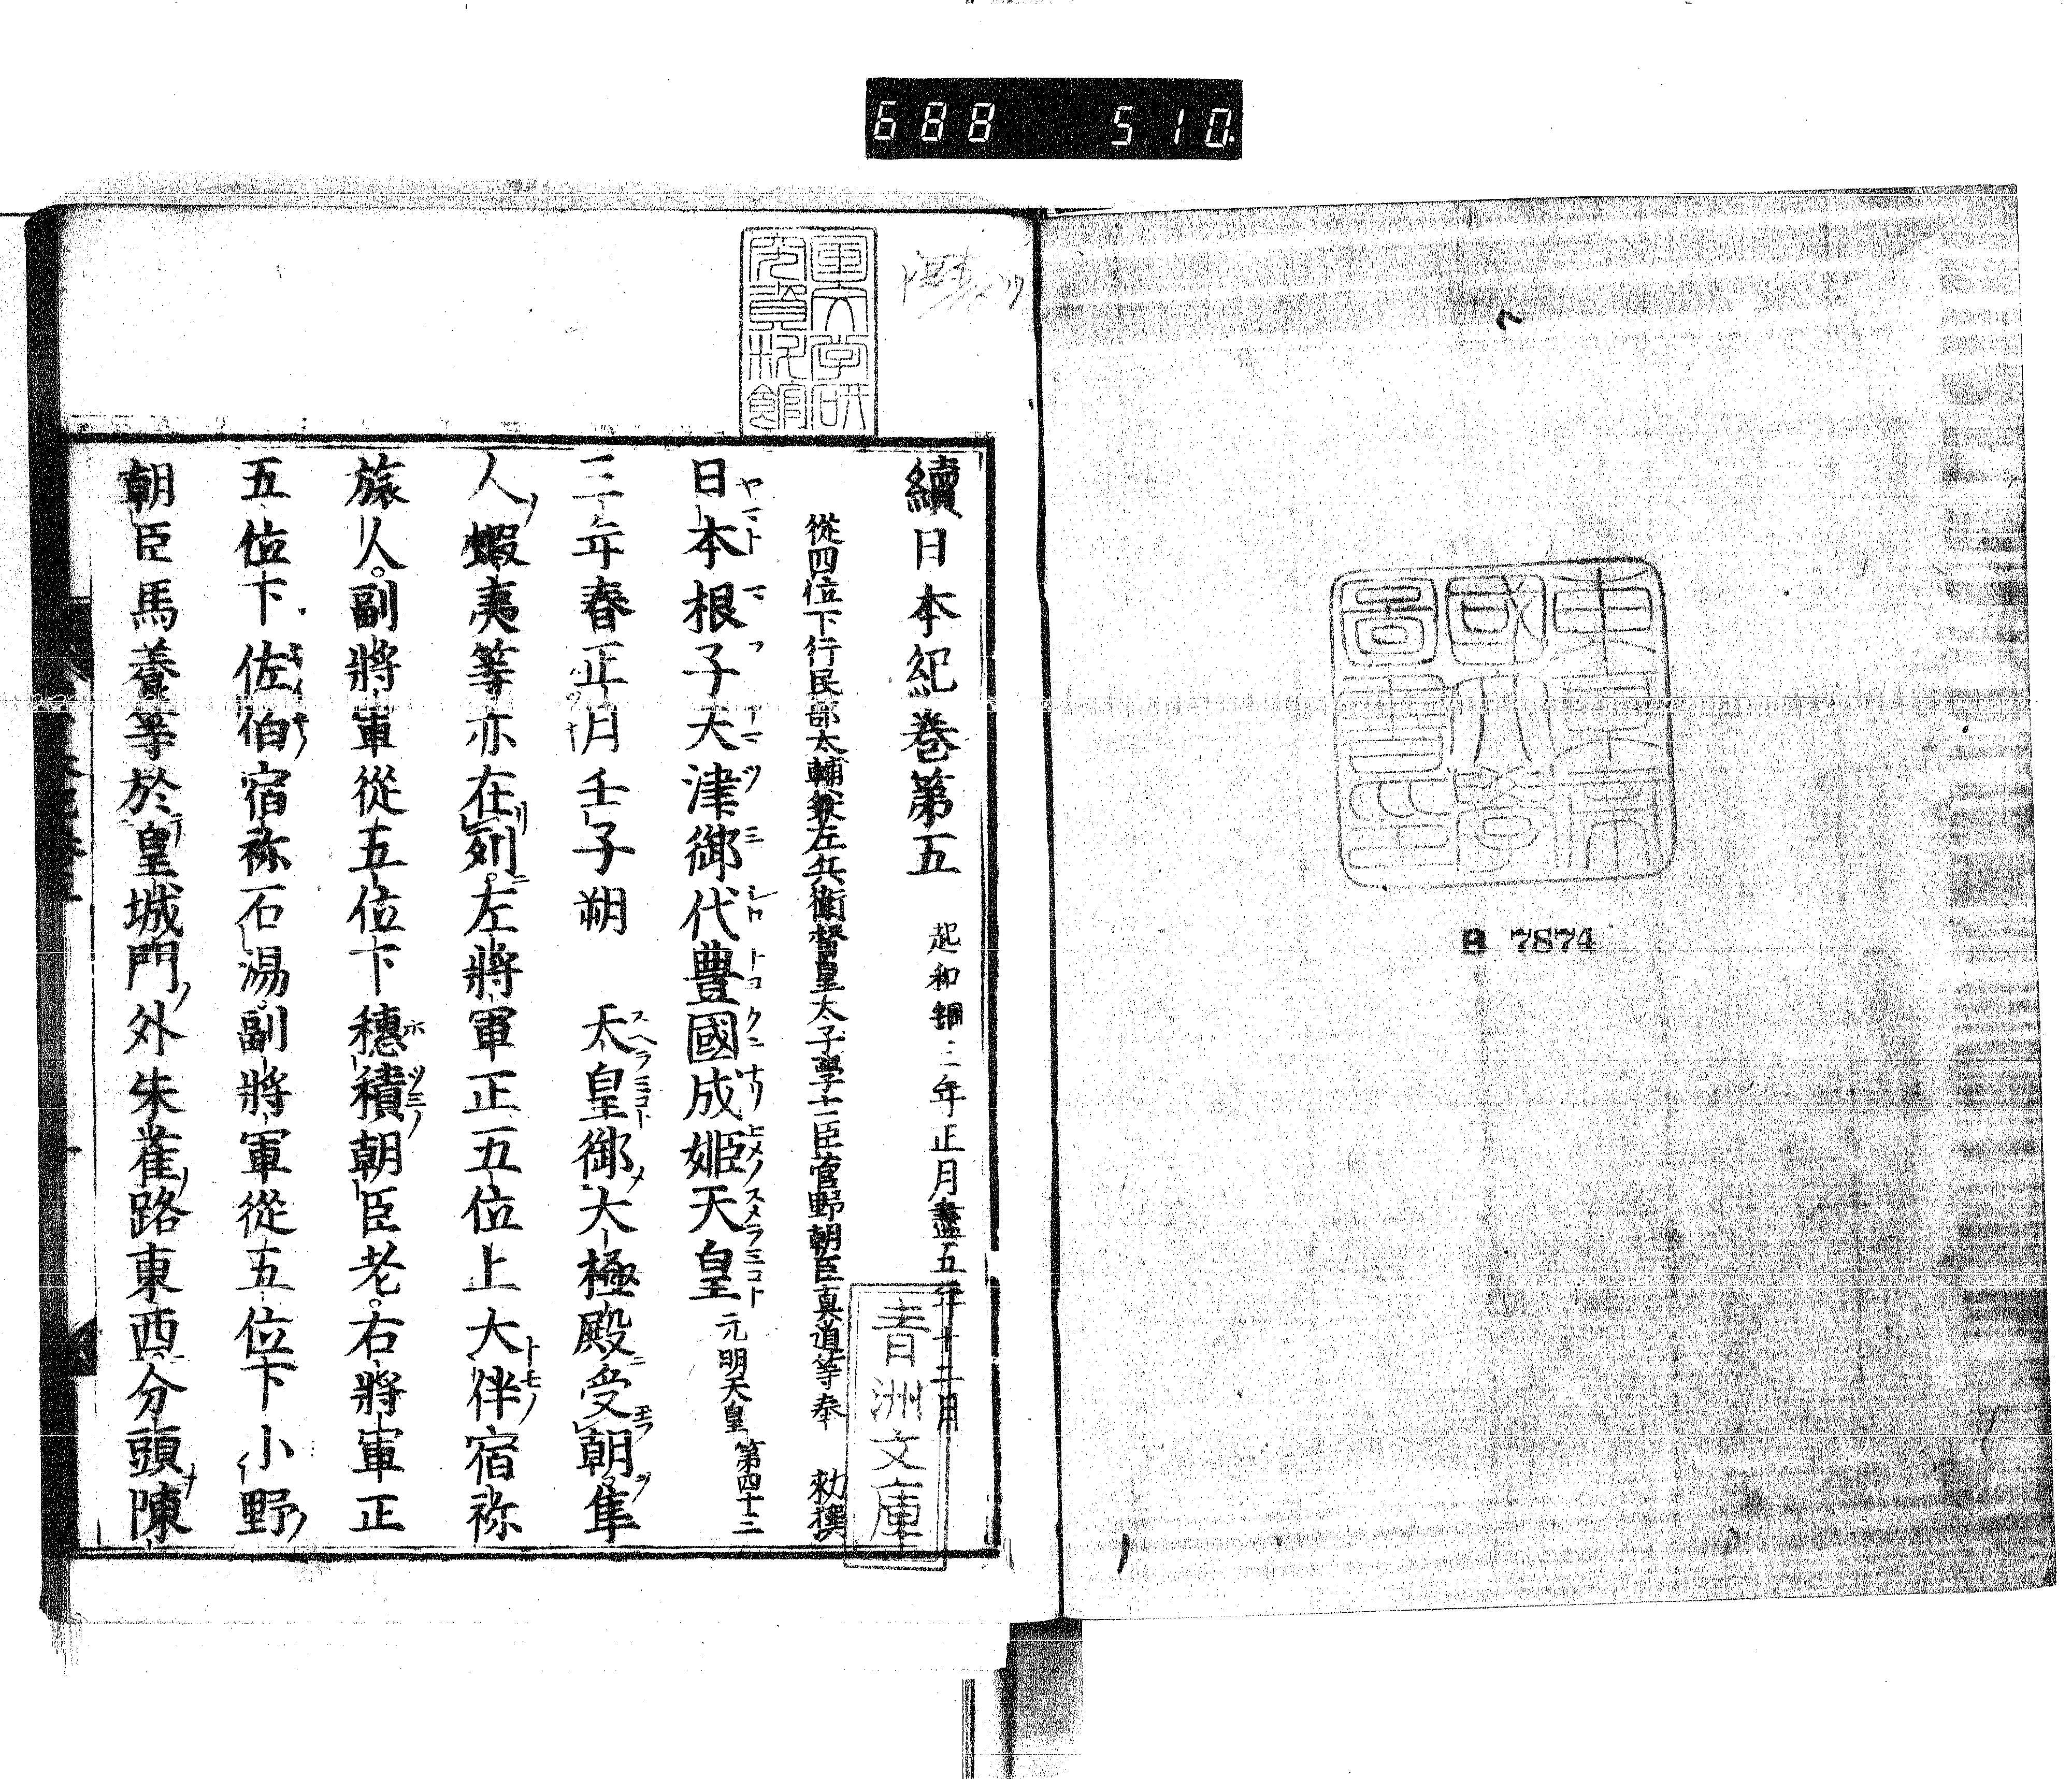 688 510
東京帝國大學圖書印
B 7874
續日本紀卷第五 起和銅三年正月盡五年十二月
從四位下行民部大輔兼左兵衛督皇太子學士臣菅野朝臣真道等奉 勅撰
日本根子天津御代豊國成姬天皇 元明天皇 第四十三
三年春正月壬子朔 天皇御大極殿受朝隼
人蝦夷等亦在列左將軍正五位上大伴宿祢
旅人副將軍從五位下穗積朝臣老右將軍正
五位下佐伯宿祢石湯副將軍從五位下小野
朝臣馬養等於皇城門外朱雀路東西分頭陳
青洲文庫